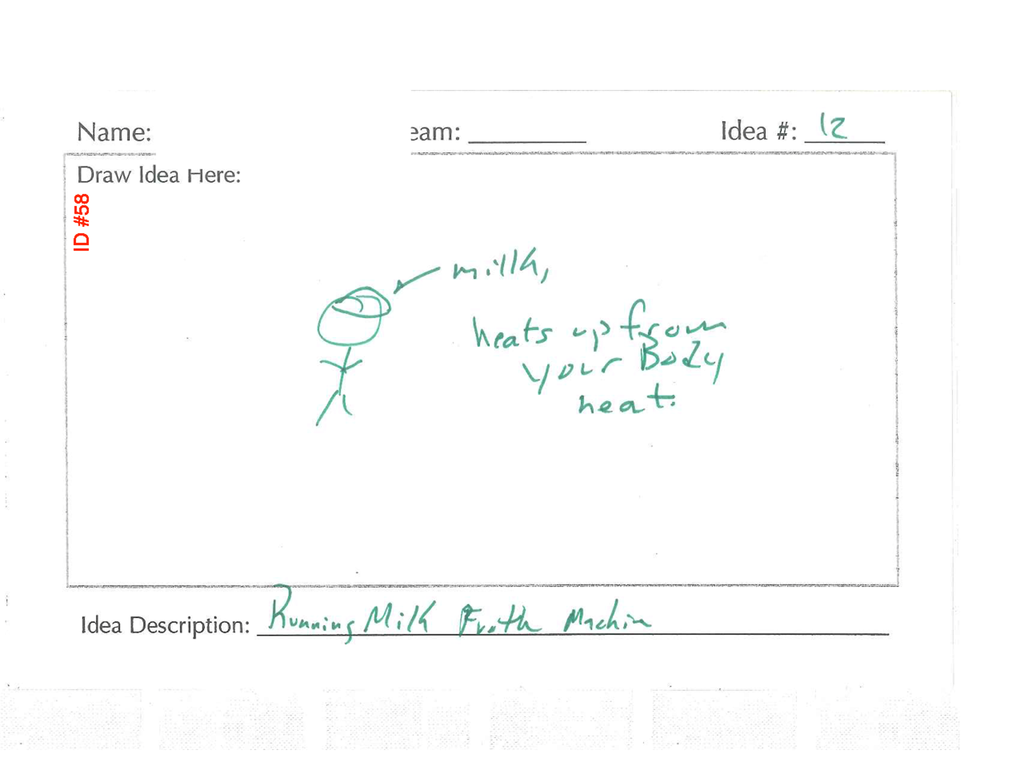 Name:
eam:
Idea #: 12
Draw Idea Here:
ID #58
milk,
heats up from
your Body
heat.
Idea Description: Running Milk Froth Machin